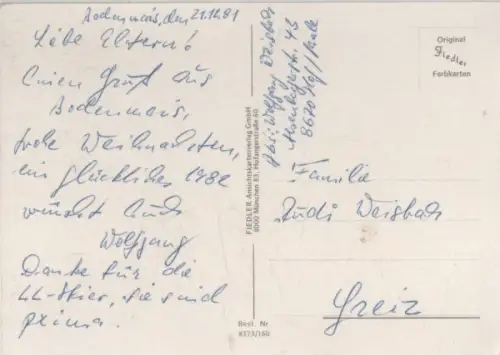 Bodenmais, den 21.12.81
Liebe Eltern!
Einen Gruß aus
Bodenmais,
frohe Weihnachten,
ein glückliches 1982
wünscht Euch
Wolfgang
Danke für die
LL-Skier, sie sind
prima.
Abs: Wolfgang Weisbach
43
8670 Hof/Saale
FIEDLER Ansichtskartenverlag GmbH
8000 München 83, Hofangerstraße 60
Best. Nr
8373/160
Original
Fiedler
Farbkarten
Familie
Rudi Weisbach
Greiz